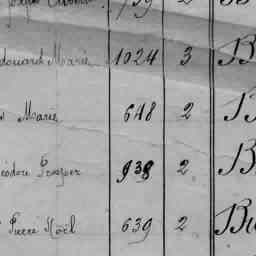 douard Marie 1024 3 B
Marie 648 2 B
éodore Prosper 938 2 B
Pierre Noël 639 2 Bu